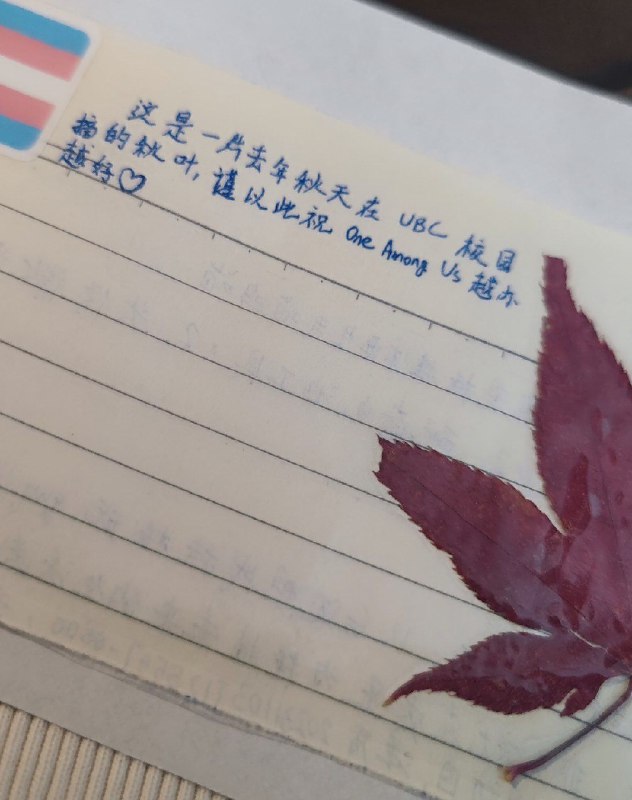 这是一片去年秋天在 UBC 校园
摘的秋叶, 谨以此祝 One Among Us 越办
越好♡